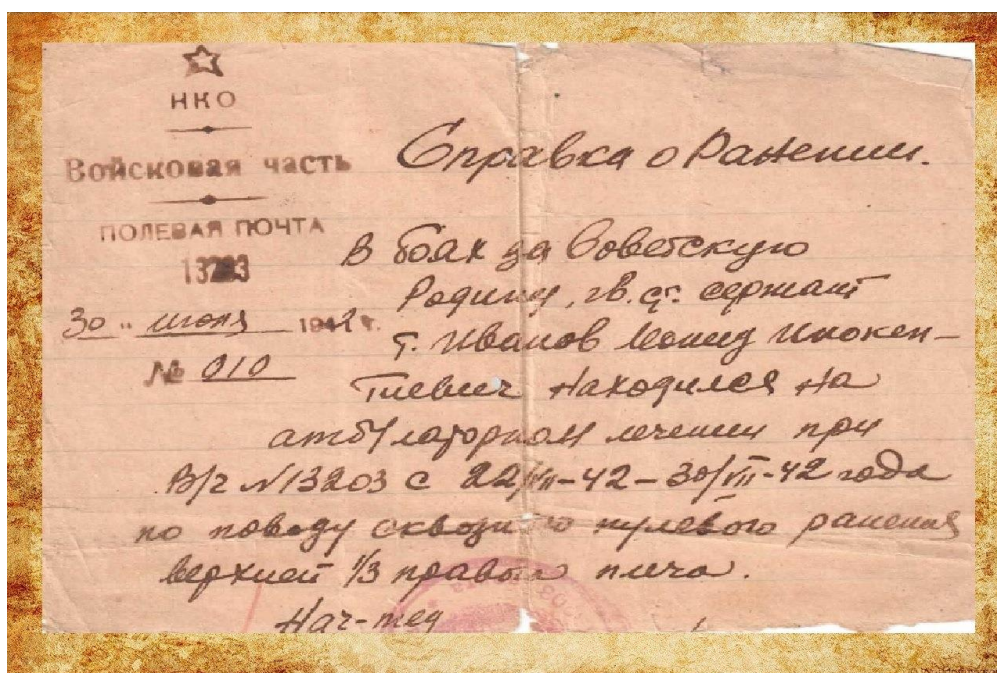 НКО
Войсковая часть
ПОЛЕВАЯ ПОЧТА
30 " июля 1942 г.
№ 010
Справка о Ранении.
В боях за Советскую
Родину, гв. ст. сержант
т. Иванов Леонид Инокен-
тиевич находился на
амбулаторном лечении при
В/ч N 13203 с 22/VII-42 - 30/VII-42 года
по поводу сквозного пулевого ранения
верхней 1/3 правого плеча.
Нач-мед